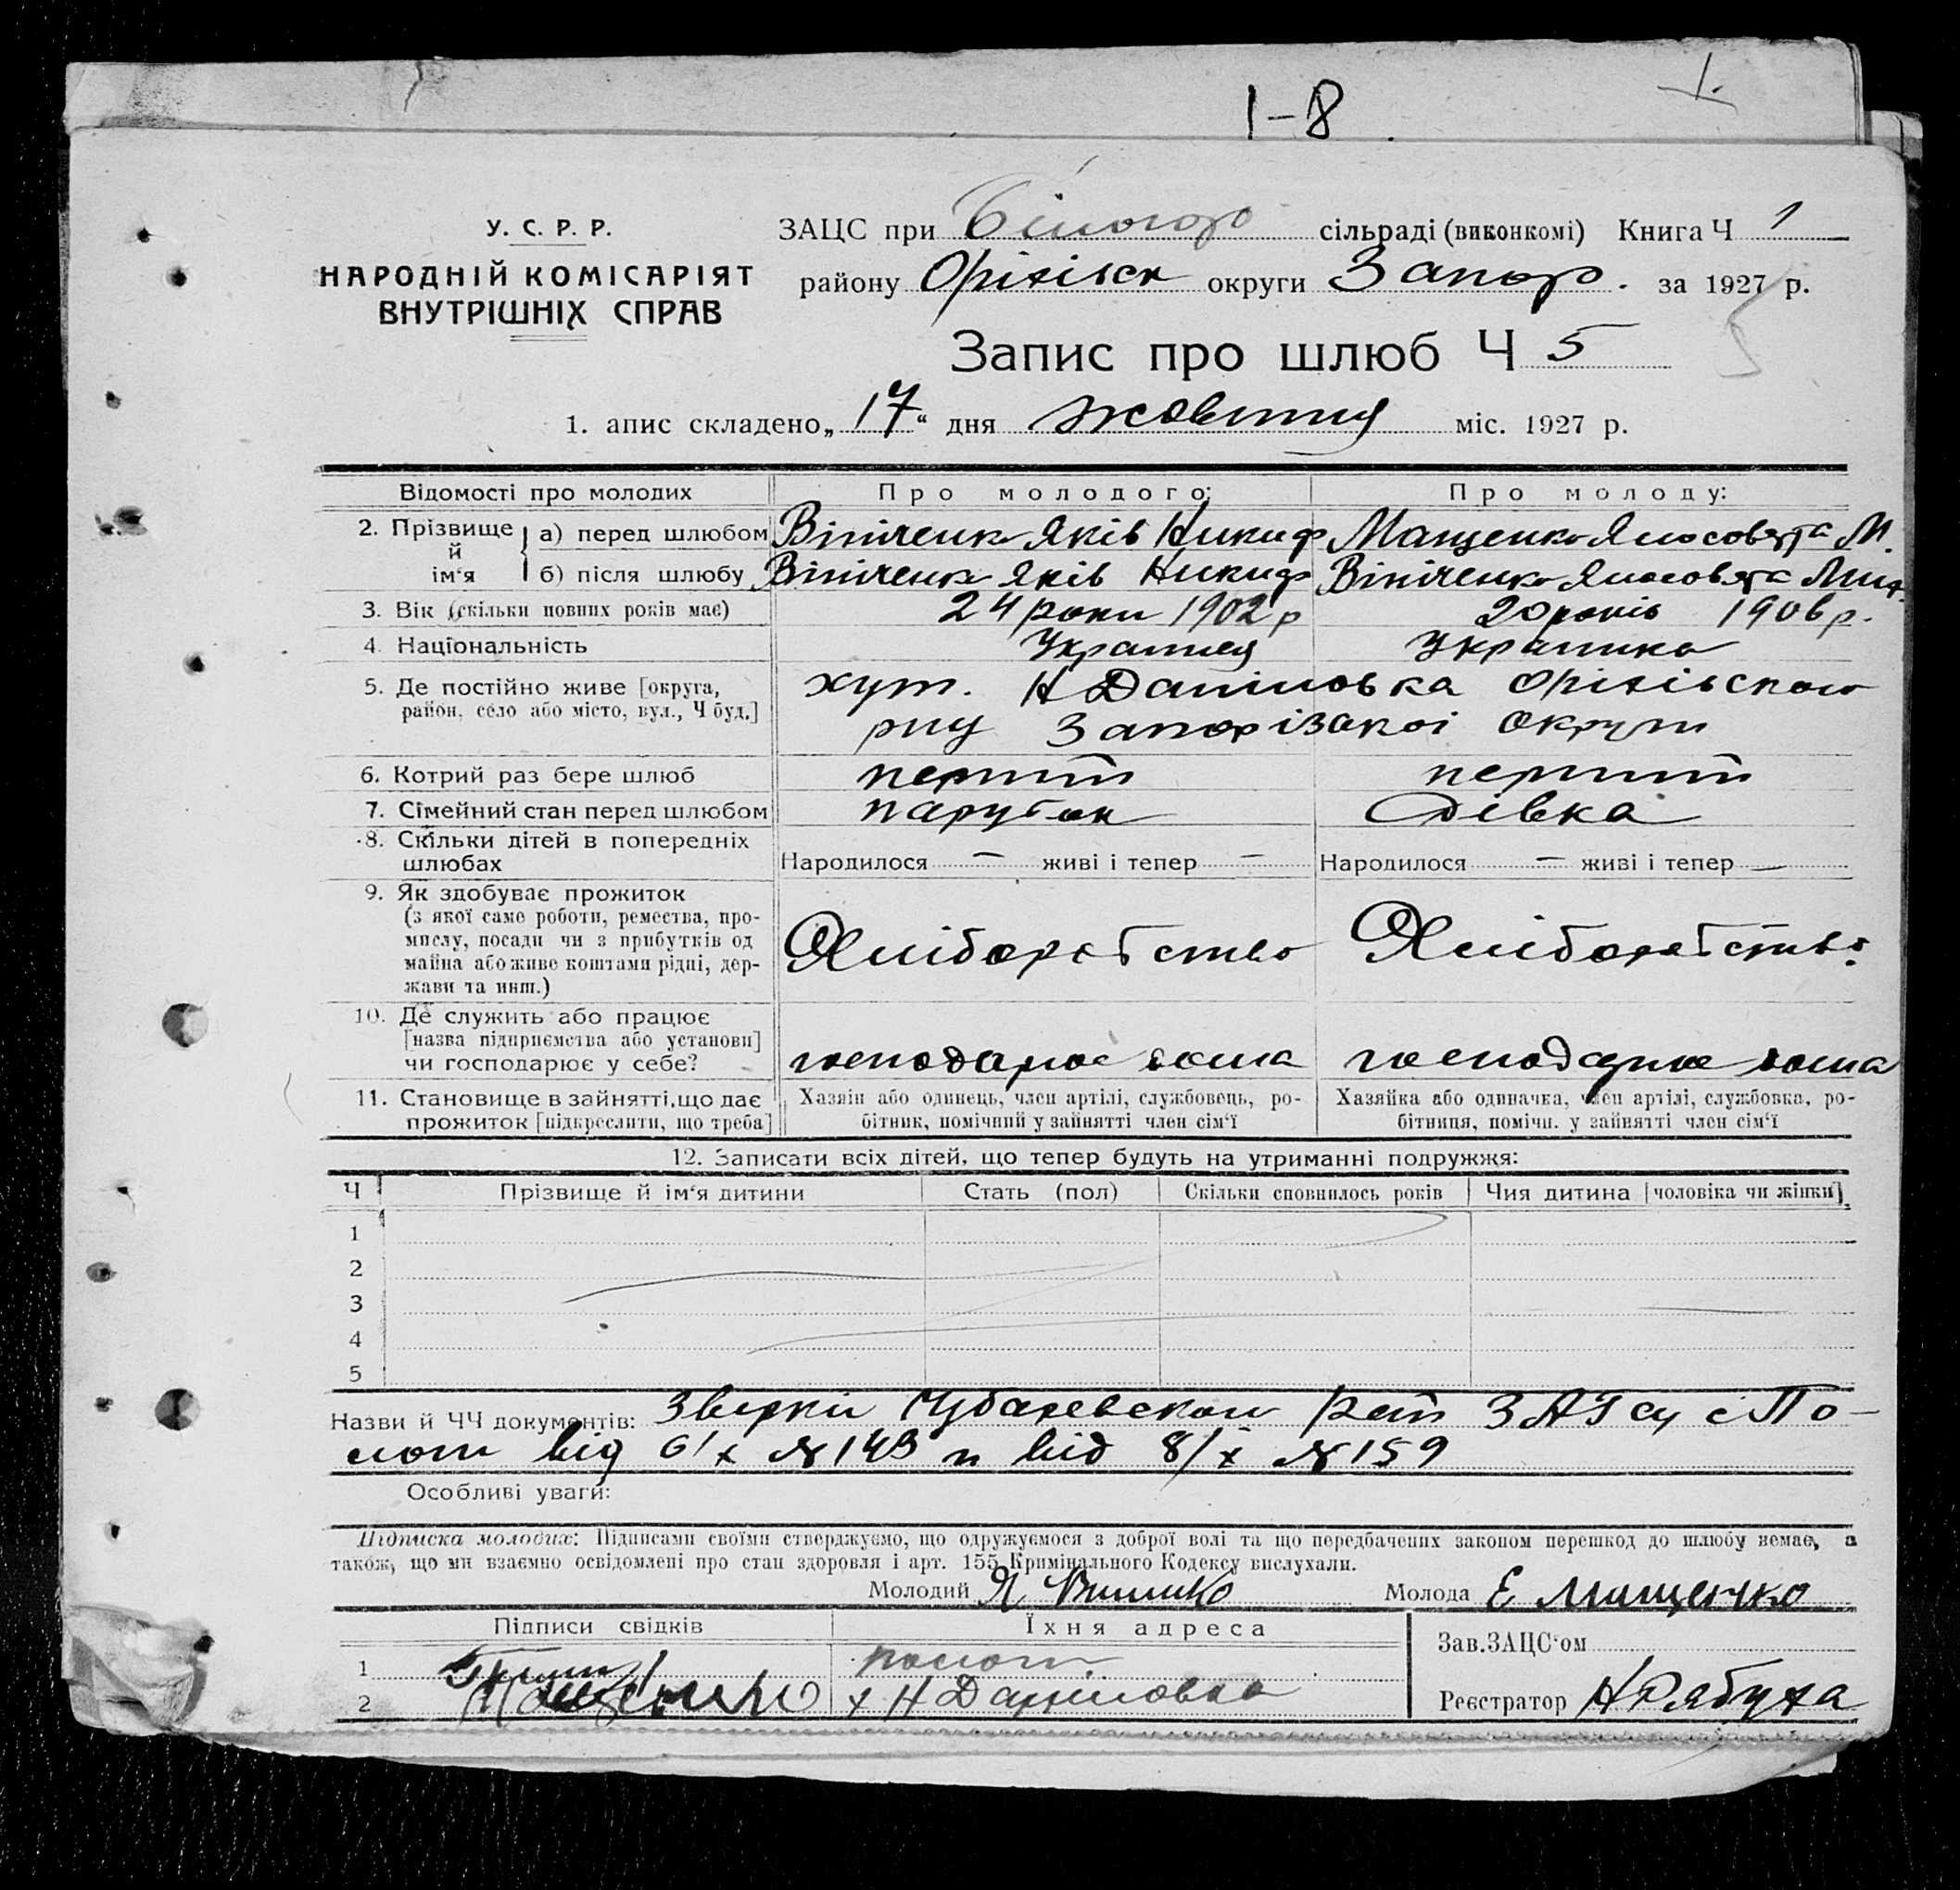 1-8
1.
У. С. Р. Р.
НАРОДНІЙ КОМІСАРІЯТ
ВНУТРІШНІХ СПРАВ
ЗАЦС при Білогор сільраді (виконкомі) Книга Ч 1
району Оріхівск округи Запор. за 1927 р.
Запис про шлюб Ч 5
1. апис складено „17" дня жовтня міс. 1927 р.
Відомості про молодих Про молодого: Про молоду:
2. Прізвище й ім'я
а) перед шлюбом Вініченк Яків Никиф Мащенко М.
б) після шлюбу Вініченк Яків Никиф Вініченко
3. Вік (скільки повних років має) 24 роки 1902 р 20 років 1906 р.
4. Національність Українка
5. Де постійно живе [округа,
район, село або місто, вул., Ч буд.]
хут. Н Данiловка Оріхівского
рну Запорізакоі округи
6. Котрий раз бере шлюб перший перший
7. Сімейний стан перед шлюбом парубок дівка
8. Скільки дітей в попередніх
шлюбах
Народилося — живі і тепер — Народилося — живі і тепер —
9. Як здобуває прожиток
(з якої саме роботи, ремества, про-
мислу, посади чи з прибутків од
майна або живе коштами рідні, дер-
жави та инш.)
Хліборобство Хліборобство
10. Де служить або працює
[назва підприємства або установи]
чи господарює у себе?
господарює господарює
11. Становище в зайнятті, що дає
прожиток [підкреслити, що треба]
Хазяїн або одинець, член артілі, службовець, ро-
бітник, помічний у зайнятті член сім'ї
Хазяйка або одиначка, член артілі, службовка, ро-
бітниця, помічн. у зайнятті член сім'ї
12. Записати всіх дітей, що тепер будуть на утриманні подружжя:
Ч Прізвище й ім'я дитини Стать (пол) Скільки сповнилось років Чия дитина [чоловіка чи жінки]
1
2
3
4
5
Назви й ЧЧ документів: Чубаревском ЗАГсу с По-
від 6/х №143 и від 8/х №159
Особливі уваги:
Підписка молодих: Підписами своїми стверджуємо, що одружуємося з доброї волі та що передбачених законом перешкод до шлюбу немає, а
також, що ми взаємно освідомлені про стан здоровля і арт. 155 Кримінального Кодексу вислухали.
Молодий Я Молода Е Мащенко
Підписи свідків Їхня адреса
Зав. ЗАЦС'ом
1
2 Мащенко х Н Даниловка
Реєстратор Н Рябуха